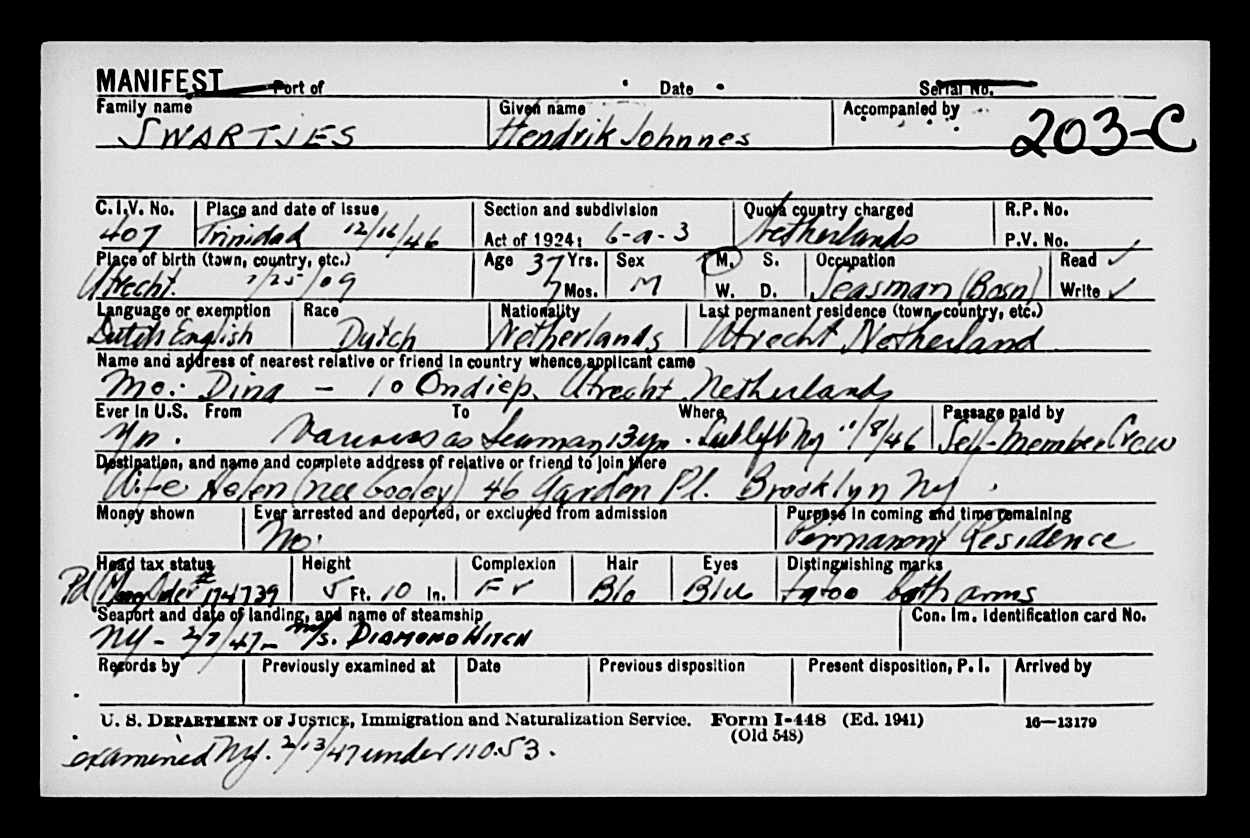 MANIFEST Port of Date Serial No.
Family name Given name Accompanied by
SWARTJES Hendrik Johnnes 203-C
C.I.V. No. Place and date of issue Section and subdivision Quota country charged R.P. No.
407 Trinidad 12/16/46 Act of 1924: 6-a-3 Netherlands P.V. No.
Place of birth (town, country, etc.) Age 37 Yrs. Sex M. S. Occupation Read ✓
Utrecht. 7/25/09 7 Mos. M W. D. Seasman (Bosn) Write ✓
Language or exemption Race Nationality Last permanent residence (town, country, etc.)
Dutch English Dutch Netherlands Utrecht Netherland
Name and address of nearest relative or friend in country whence applicant came
Mo: Dina - 10 Ondiep, Utrecht Netherlands
Ever in U.S. From To Where Passage paid by
Various as Seaman 13 yrs. Last left NY 11/8/46 Self-Member Crew
Destination, and name and complete address of relative or friend to join there
Wife Helen (nee Gooley) 46 Garden Pl. Brooklyn NY.
Money shown Ever arrested and deported, or excluded from admission Purpose in coming and time remaining
No. Permanent Residence
Head tax status Height Complexion Hair Eyes Distinguishing marks
Pd (Money Order # 174739 5 Ft. 10 In. Fr Blo Blu tatoo both arms
Seaport and date of landing, and name of steamship Con. Im. Identification card No.
NY - 2/7/47 - M/S. DIAMOND HITCH
Records by Previously examined at Date Previous disposition Present disposition, P.I. Arrived by
U. S. DEPARTMENT OF JUSTICE, Immigration and Naturalization Service. Form I-448 (Ed. 1941) 16—13179
(Old 548)
examined NY. 2/13/47 under 110.53.